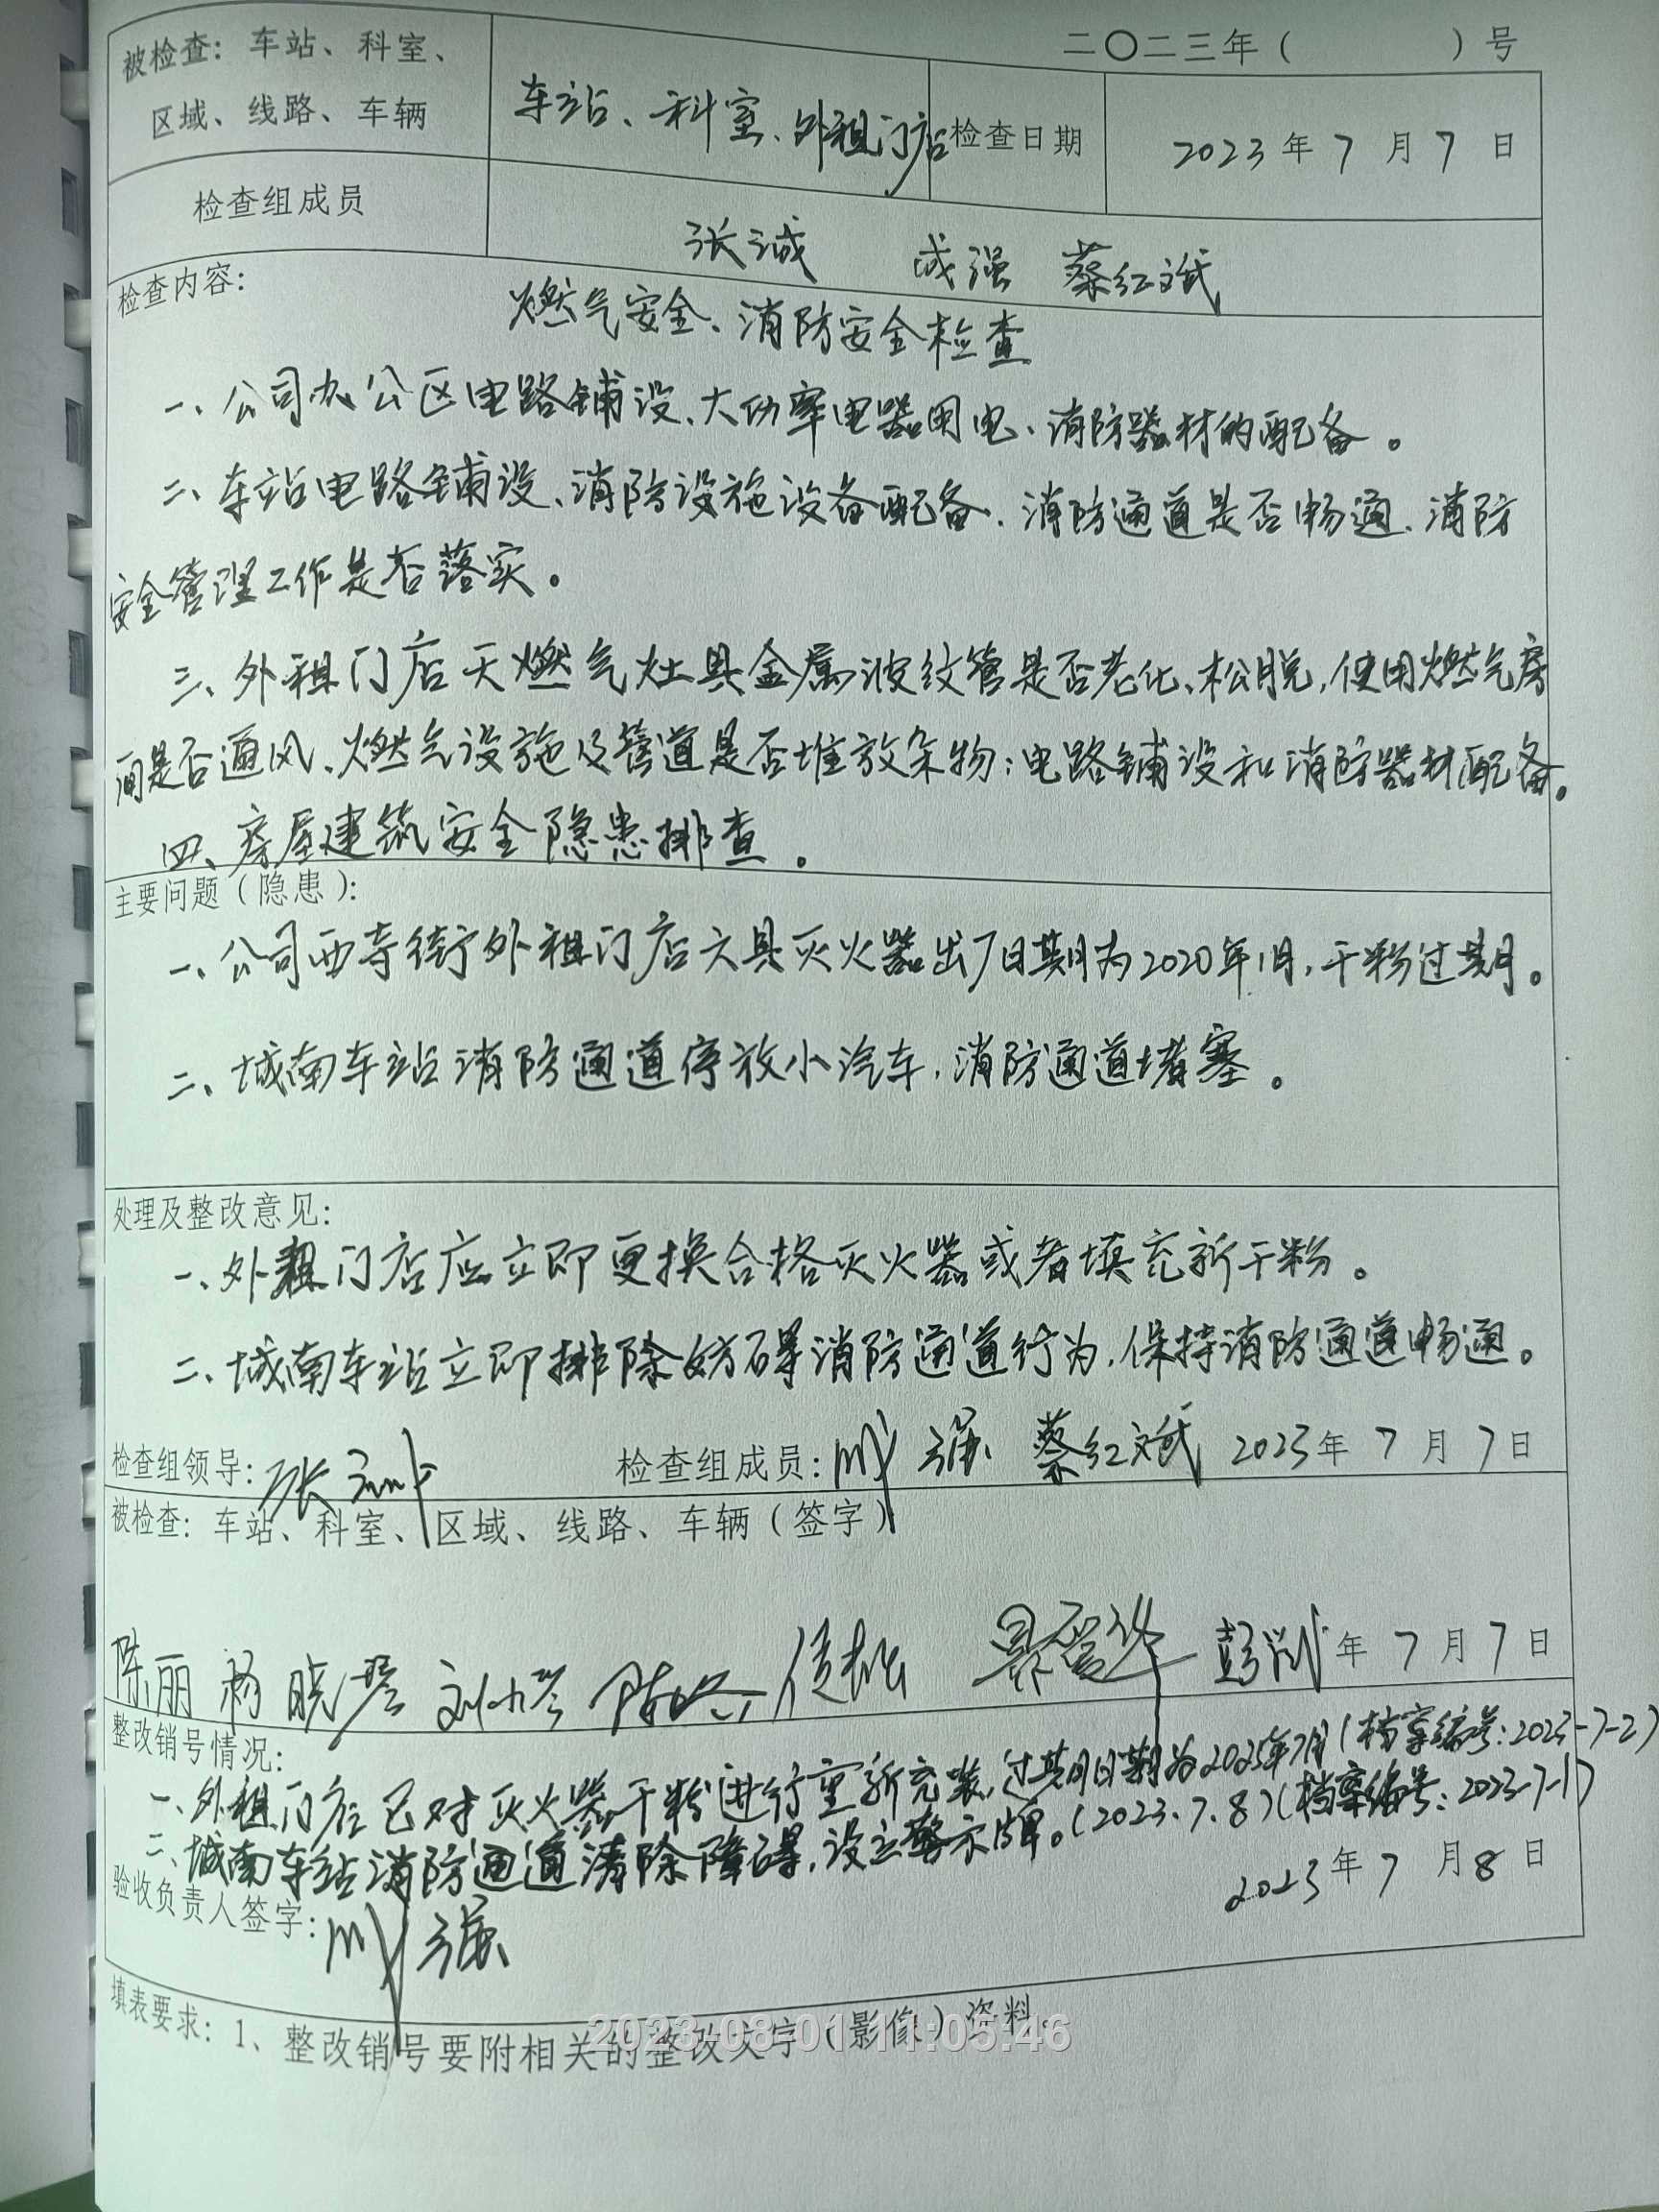 二〇二三年（ ）号
被检查：车站、科室、
区域、线路、车辆
车站、科室、外租门店
检查日期
2023年7月7日
检查组成员
张诚 成强 蔡红斌
检查内容：
燃气安全、消防安全检查
一、公司办公区电路铺设、大功率电器用电、消防器材的配备。
二、车站电路铺设、消防设施设备配备、消防通道是否畅通、消防
安全管理工作是否落实。
三、外租门店天燃气灶具金属波纹管是否老化、松脱，使用燃气房
间是否通风、燃气设施及管道是否堆放杂物；电路铺设和消防器材配备。
四、房屋建筑安全隐患排查。
主要问题（隐患）：
一、公司西寺街外租门店六具灭火器出厂日期为2020年1月，干粉过期。
二、城南车站消防通道停放小汽车，消防通道堵塞。
处理及整改意见：
一、外租门店应立即更换合格灭火器或者填充新干粉。
二、城南车站立即排除妨碍消防通道行为，保持消防通道畅通。
检查组领导：张 检查组成员：成强 蔡红斌 2023年7月7日
被检查：车站、科室、区域、线路、车辆（签字）
陈丽 杨晓琴 年7月7日
整改销号情况：
一、外租门店已对灭火器干粉进行重新充装，过期日期为2025年7月（档案编号：2023-7-2）
二、城南车站消防通道清除障碍，设立警示牌。（2023.7.8）（档案编号：2023-7-1）
验收负责人签字：成强
2023年7月8日
填表要求：1、整改销号要附相关的整改文字（影像）资料。
2023-08-01 11:05:46